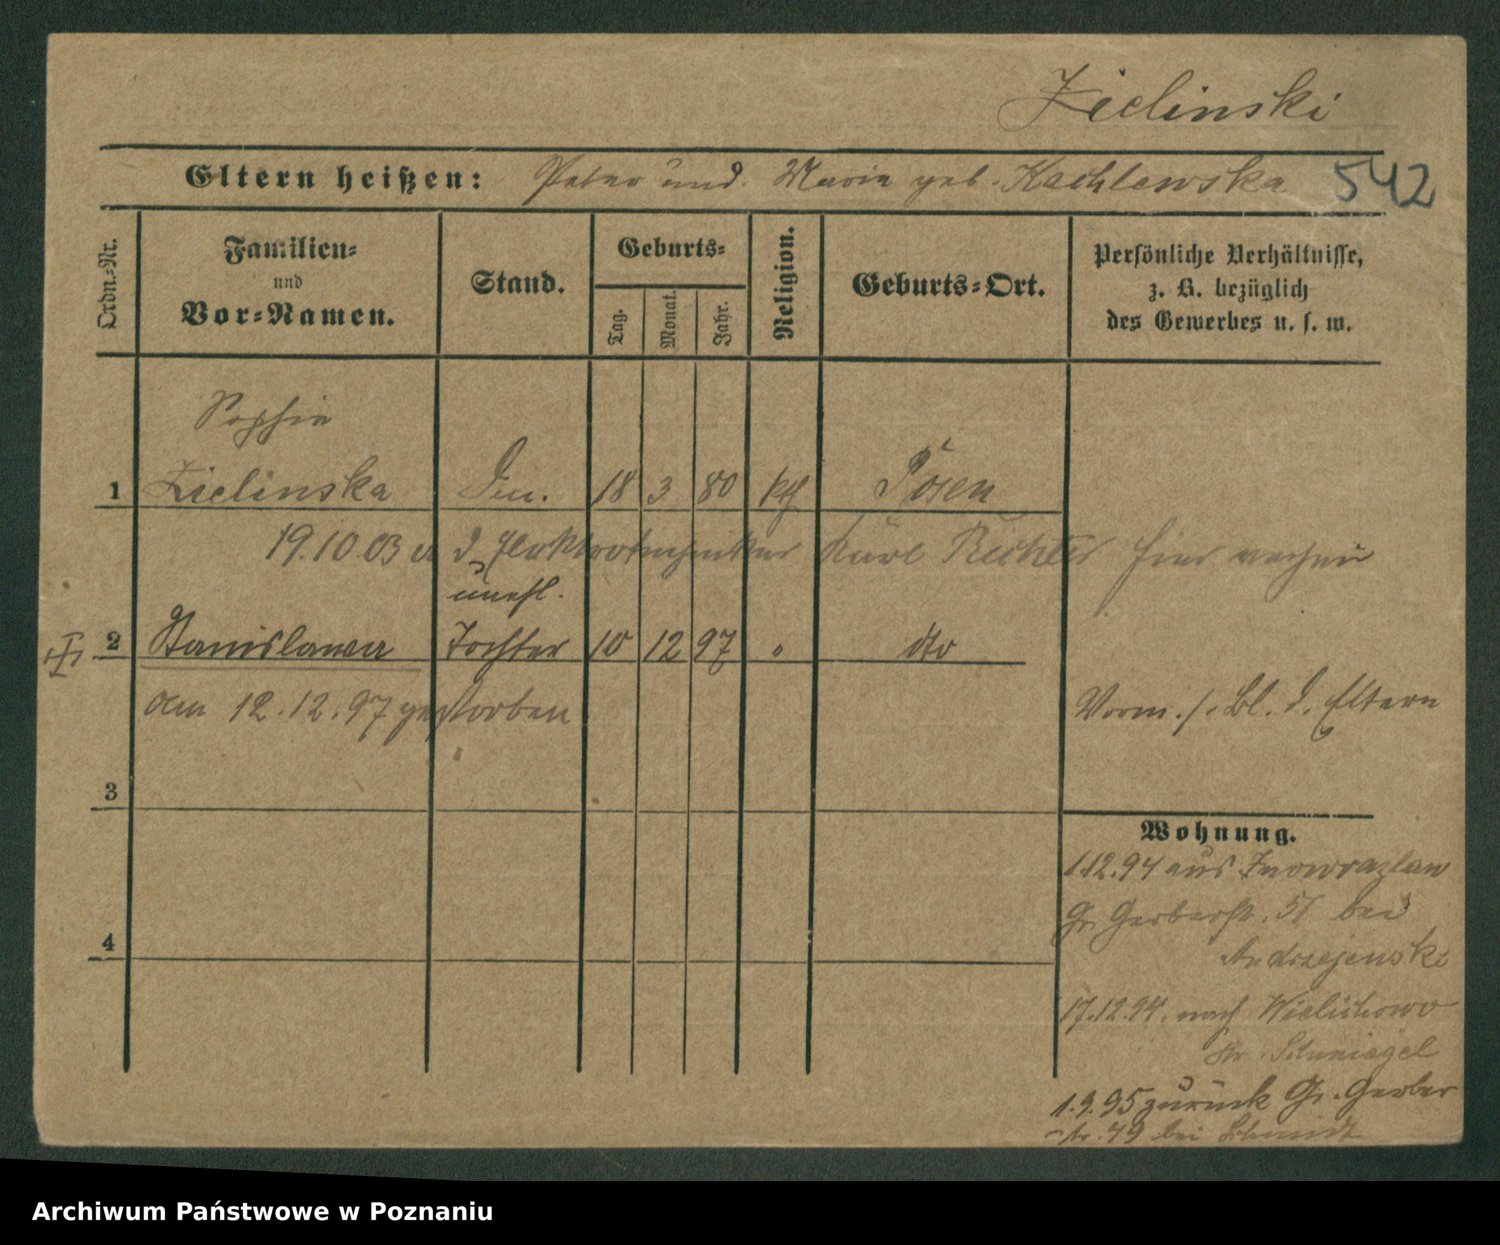 Zielinski
Eltern heißen: Peter und Maria geb. Kachlewska 542
Ordn.-Nr.
Familien-
und
Vor-Namen.
Stand.
Geburts-
Tag.
Monat.
Jahr.
Religion.
Geburts-Ort.
Persönliche Verhältnisse,
z. B. bezüglich
des Gewerbes u. s. w.
Sophie
1 Zielinska 18 3 80 kth Posen
19.10.03 d. Elektrotechniker Karl Richter hier
unehl.
2 Stanislawa Tochter 10 12 97 " dto
am 12.12.97 gestorben
Verm. s. Bl. d. Eltern
3
Wohnung.
1.12.94 aus Inowrazlaw
Gr. Gerberstr. 51 bei
4
Andrzejewski
17.12.94. nach Wielichowo
Kr. Schmiegel
1.9.95 zurück Gr. Gerber
-str. 49 bei Schmidt
Archiwum Państwowe w Poznaniu